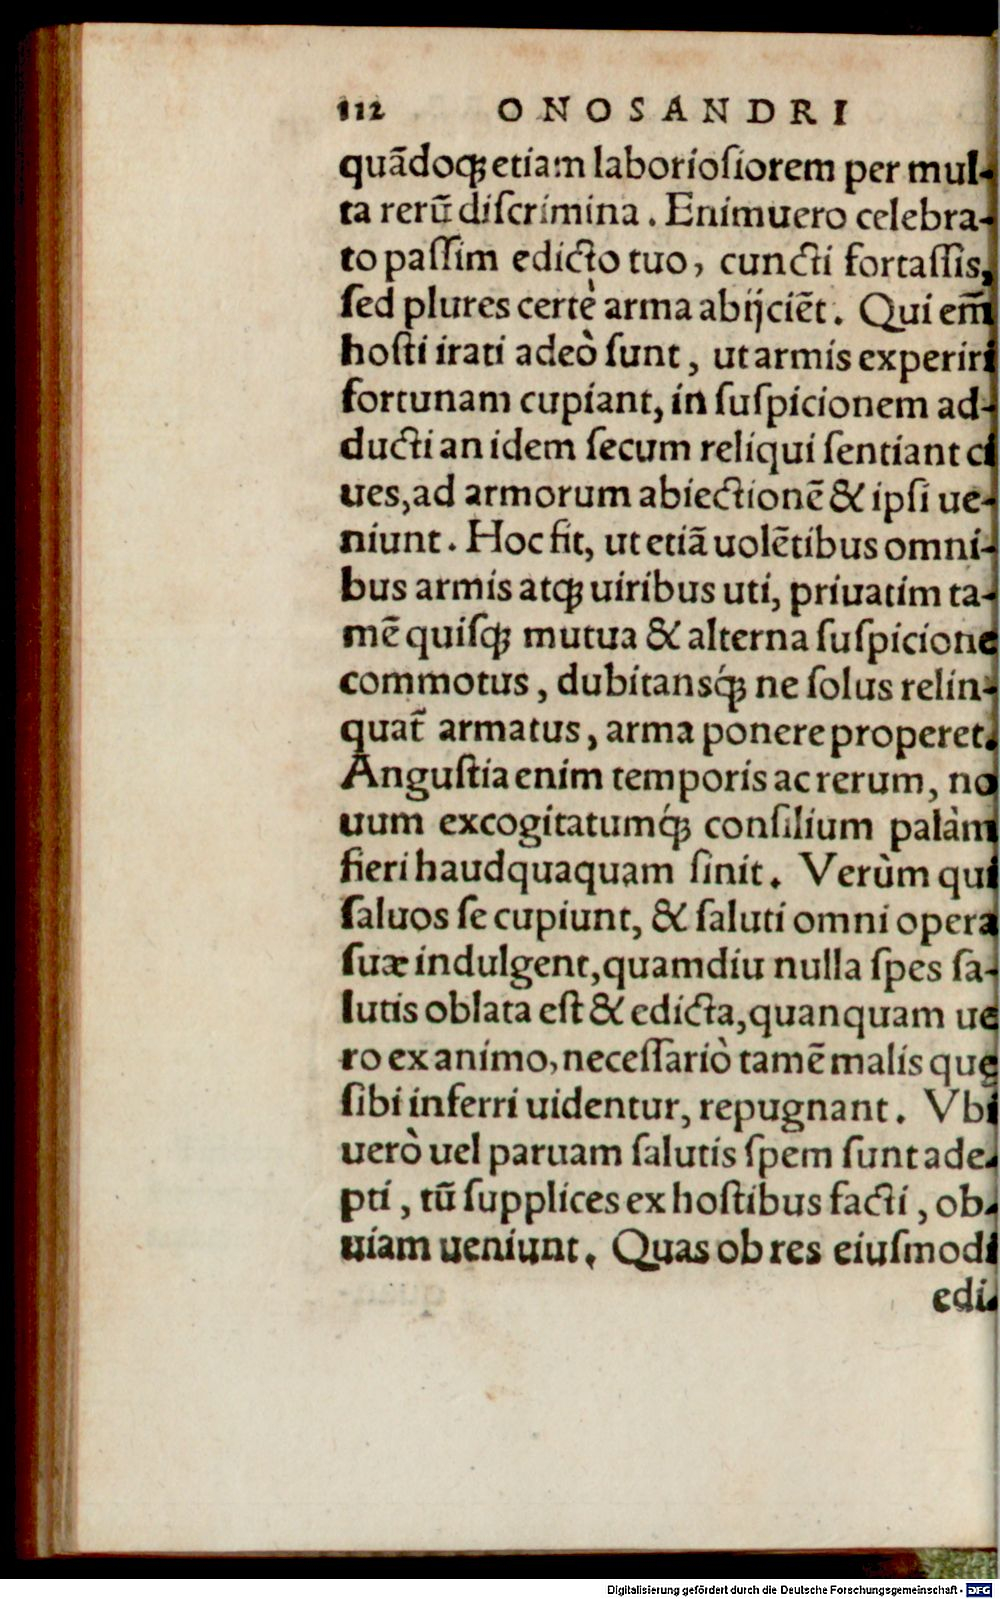 112 ONOSANDRI
quãdoqꝫ etiam laboriosiorem per mul-
ta rerũ discrimina. Enimuero celebra-
to passim edicto tuo, cuncti fortassis,
sed plures certè arma abijciẽt. Qui em̃
hosti irati adeò sunt, ut armis experiri
fortunam cupiant, in suspicionem ad-
ducti an idem secum reliqui sentiant ci
ues, ad armorum abiectionẽ & ipsi ue-
niunt. Hoc fit, ut etiã uolẽtibus omni-
bus armis atqꝫ uiribus uti, priuatim ta-
mẽ quisqꝫ mutua & alterna suspicione
commotus, dubitansq́ꝫ ne solus relin-
quat̃ armatus, arma ponere properet.
Angustia enim temporis ac rerum, no
uum excogitatumq́ꝫ consilium palàm
fieri haudquaquam sinit. Verùm qui
saluos se cupiunt, & saluti omni opera
suæ indulgent, quamdiu nulla spes sa-
lutis oblata est & edicta, quanquam ue
ro ex animo, necessariò tamẽ malis quę
sibi inferri uidentur, repugnant. Vbi
uerò uel paruam salutis spem sunt ade-
pti, tũ supplices ex hostibus facti, ob-
uiam ueniunt. Quas ob res eiusmodi
edi-
Digitalisierung gefördert durch die Deutsche Forschungsgemeinschaft - DFG